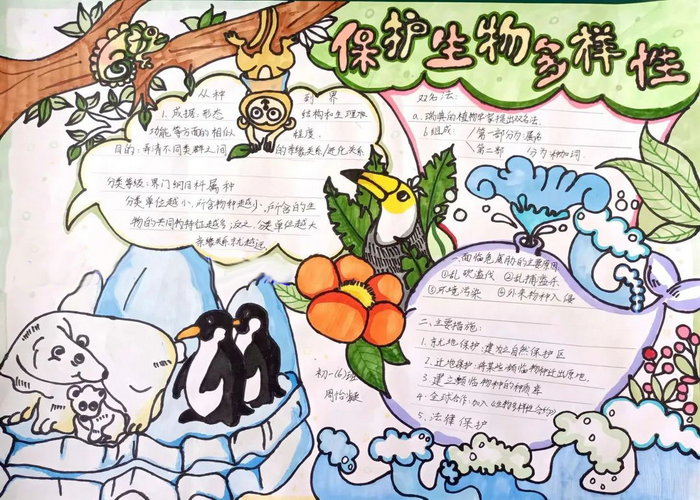 保护生物多样性
从种 到 界
1.成据:形态 结构和生理
功能等方面的相似 程度.
目的:弄清不同类群之间 的亲缘关系/进化关系
分类等级:界门纲目科属种
分类单位越小,所含物种越小,所含的生
物的共同物特征越多,反之,分类单位越大
亲缘关系就越远.
双名法:
a.瑞典的植物学家提出双名法.
b.组成: 第一部分为属名
第二部 分为种加词.
一.面临危 胁的主要原因
①乱砍滥伐 ②乱捕滥杀
③环境污染 ④外来物种入侵
二.主要措施:
1.就地保护:建立自然保护区
2.迁地保护:将某些濒临物种迁出原地.
3.建立濒临物种的种质库
4.全球合作:加入《生物多样性公约》
5.法律保护
初一(6)班
周怡凝